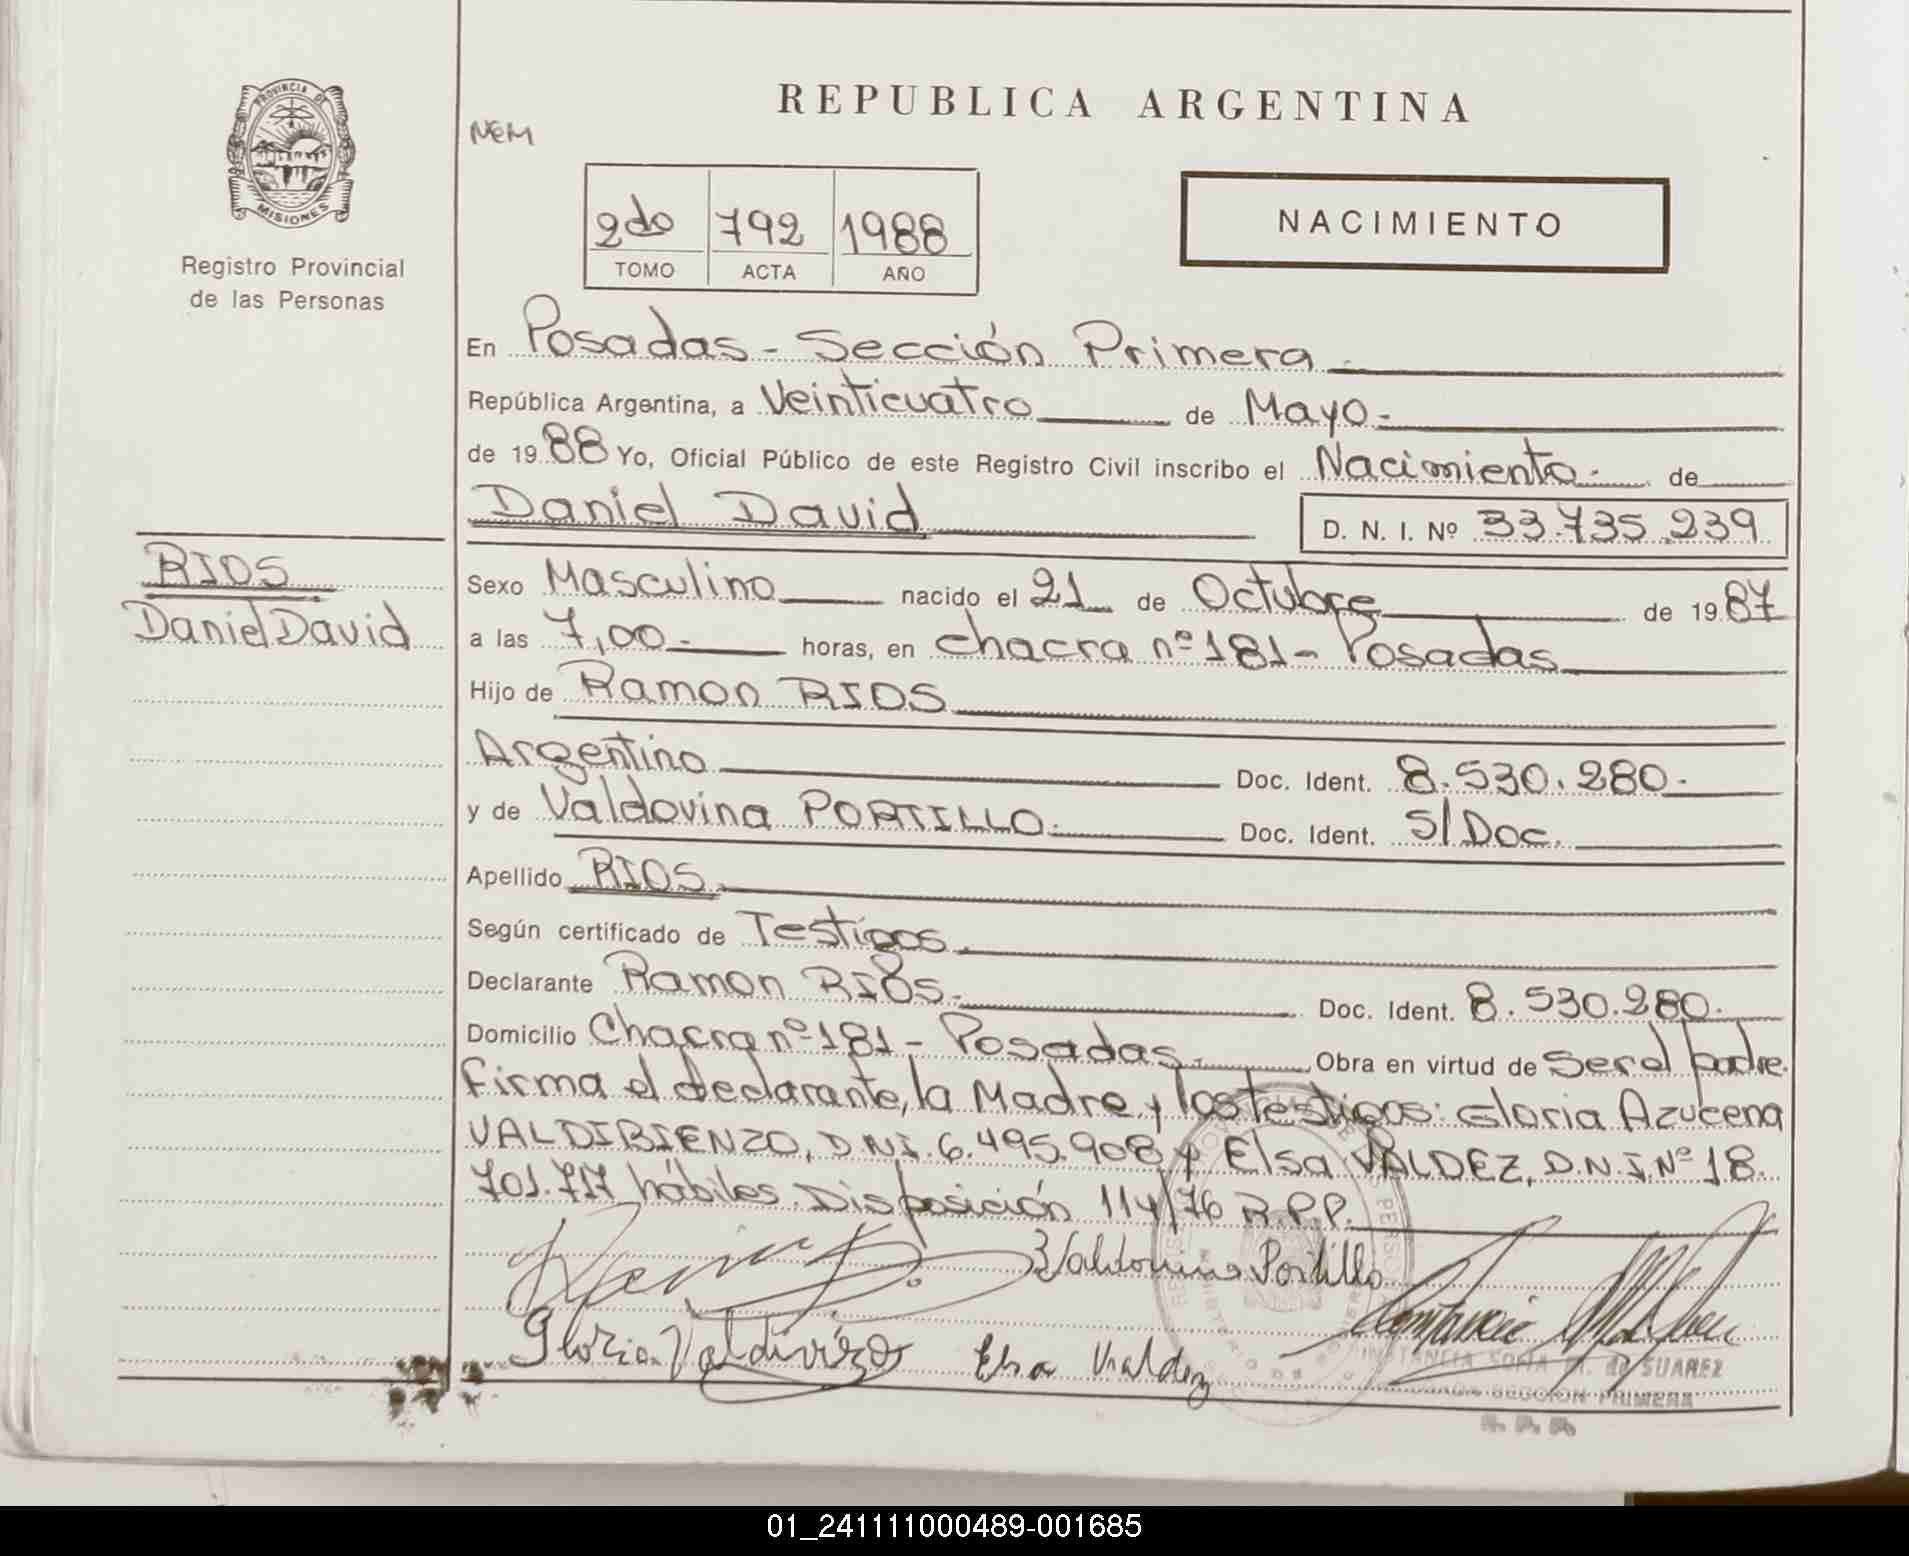 PROVINCIA DE
MISIONES
Registro Provincial
de las Personas
RIOS
Daniel David
REPUBLICA ARGENTINA
NEM
2do 792 1988
TOMO ACTA AÑO
NACIMIENTO
En Posadas - Sección Primera.
República Argentina, a Veinticuatro de Mayo.
de 1988 Yo, Oficial Público de este Registro Civil inscribo el Nacimiento. de
Daniel David D. N. I. Nº 33.735.239
Sexo Masculino nacido el 21 de Octubre de 1987
a las 7,00. horas, en chacra nº 181 - Posadas
Hijo de Ramon RIOS
Argentino Doc. Ident. 8.530.280.
y de Valdovina PORTILLO. Doc. Ident. S/Doc.
Apellido RIOS
Según certificado de Testigos.
Declarante Ramon RIOS. Doc. Ident. 8.530.280.
Domicilio Chacra nº 181 - Posadas. Obra en virtud de ser el padre.
Firma el declarante, la Madre y los testigos: Gloria Azucena
VALDIBIENZO, D.N.I. 6.495.908 y Elsa VALDEZ, D.N.I. Nº 18.
701.717 hábiles. Disposición 114/76 R.P.P.
Portillo
Gloria Valdiviezo Elsa Valdez
SOFIA M. de SUAREZ
SECCION PRIMERA
R. P. P.
01_241111000489-001685